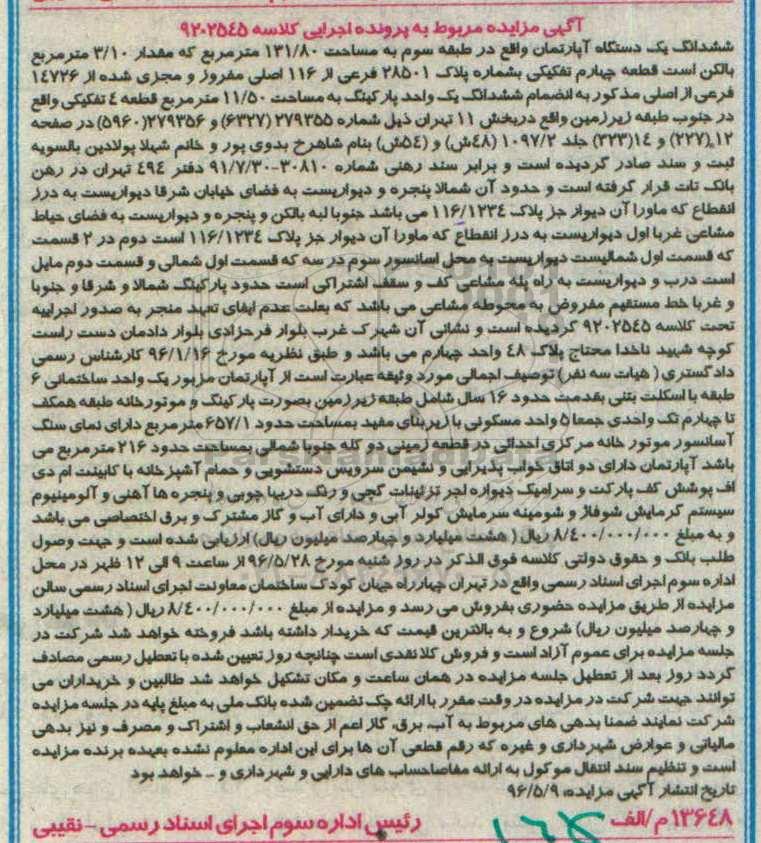 آگهی مزایده مربوط به پرونده اجرایی کلاسه ۹۲۰۲۵۴۵
ششدانگ یک دستگاه آپارتمان واقع در طبقه سوم به مساحت ۱۳۱/۸۰ مترمربع که مقدار ۳/۱۰ مترمربع
بالکن است قطعه چهارم تفکیکی بشماره پلاک ۲۸۵۰۱ فرعی از ۱۱۶ اصلی مفروز و مجزی شده از ۱۴۷۲۶
فرعی از اصلی مذکور به انضمام ششدانگ یک واحد پارکینگ به مساحت ۱۱/۵۰ مترمربع قطعه ٤ تفکیکی واقع
در جنوب طبقه زیرزمین واقع دربخش ۱۱ تهران ذیل شماره ۲۷۹۳۵۵ (۶۳۲۷) و ۲۷۹۳۵۶(۵۹۶۰) در صفحه
۱۲(۲۲۷) و ۱٤(۳۲۳) جلد ۱۰۹۷/۲ (٤۸ش) و (٥٤ش) بنام شاهرخ بدوی پور و خانم شهلا پولادین بالسویه
ثبت و سند صادر گردیده است و برابر سند رهنی شماره ۳۰۸۱۰-۹۱/۷/۳۰ دفتر ٤٩٤ تهران در رهن
بانک تات قرار گرفته است و حدود آن شمالا پنجره و دیواریست به فضای خیابان شرقا دیواریست به درز
انقطاع که ماورا آن دیوار جز پلاک ۱۱۶/۱۲۳٤ می باشد جنوبا لبه بالکن و پنجره و دیواریست به فضای حیاط
مشاعی غربا اول دیواریست به درز انقطاع که ماورا آن دیوار جز پلاک ۱۱۶/۱۲۳٤ است دوم در ۲ قسمت
که قسمت اول شمالیست دیواریست به محل آسانسور سوم در سه که قسمت اول شمالی و قسمت دوم مایل
است درب و دیواریست به راه پله مشاعی کف و سقف اشتراکی است حدود پارکینگ شمالا و شرقا و جنوبا
و غربا خط مستقیم مفروض به محوطه مشاعی می باشد که بعلت عدم ایفای تعهد منجر به صدور اجراییه
تحت کلاسه ۹۲۰۲۵٤۵ گردیده است و نشانی آن شهرک غرب بلوار فرحزادی بلوار دادمان دست راست
کوچه شهید ناخدا محتاج پلاک ٤٨ واحد چهارم می باشد و طبق نظریه مورخ ۹۶/۱/۱۶ کارشناس رسمی
دادگستری ( هیات سه نفر) توصیف اجمالی مورد وثیقه عبارت است از آپارتمان مزبور یک واحد ساختمانی ۶
طبقه با اسکلت بتنی بقدمت حدود ۱۶ سال شامل طبقه زیرزمین بصورت پارکینگ و موتورخانه طبقه همکف
تا چهارم تک واحدی جمعا ۵ واحد مسکونی با زیربنای مفید بمساحت حدود ۶۵۷/۱ مترمربع دارای نمای سنگ
آسانسور موتور خانه مرکزی احداثی در قطعه زمینی دو کله جنوبا شمالی بمساحت حدود ۲۱۶ مترمربع می
باشد آپارتمان دارای دو اتاق خواب پذیرایی و نشیمن سرویس دستشویی و حمام آشپزخانه با کابینت ام دی
اف پوشش کف پارکت و سرامیک دیواره اجر تزئینات گچی و رنگ دربها چوبی و پنجره ها آهنی و آلومینیوم
سیستم گرمایش شوفاژ و شومینه سرمایش کولر آبی و دارای آب و گاز مشترک و برق اختصاصی می باشد
و به مبلغ ۸/٤۰۰/۰۰۰/۰۰۰ ریال ( هشت میلیارد و چهارصد میلیون ریال) ارزیابی شده است و جهت وصول
طلب بانک و حقوق دولتی کلاسه فوق الذکر در روز شنبه مورخ ۹۶/۵/۲۸ از ساعت ۹ الی ۱۲ ظهر در محل
اداره سوم اجرای اسناد رسمی واقع در تهران چهارراه جهان کودک ساختمان معاونت اجرای اسناد رسمی سالن
مزایده از طریق مزایده حضوری بفروش می رسد و مزایده از مبلغ ۸/٤۰۰/۰۰۰/۰۰۰ ریال ( هشت میلیارد
و چهارصد میلیون ریال) شروع و به بالاترین قیمت که خریدار داشته باشد فروخته خواهد شد شرکت در
جلسه مزایده برای عموم آزاد است و فروش کلا نقدی است چنانچه روز تعیین شده با تعطیل رسمی مصادف
گردد روز بعد از تعطیل جلسه مزایده در همان ساعت و مکان تشکیل خواهد شد طالبین و خریداران می
توانند جهت شرکت در مزایده در وقت مقرر با ارائه چک تضمین شده بانک ملی به مبلغ پایه در جلسه مزایده
شرکت نمایند ضمنا بدهی های مربوط به آب، برق، گاز اعم از حق انشعاب و اشتراک و مصرف و نیز بدهی
مالیاتی و عوارض شهرداری و غیره که رقم قطعی آن ها برای این اداره معلوم نشده بعهده برنده مزایده
است و تنظیم سند انتقال موکول به ارائه مفاصاحساب های دارایی و شهرداری و ... خواهد بود
تاریخ انتشار آگهی مزایده: ۹۶/۵/۹
۱۳۶٤۸ م/الف رئیس اداره سوم اجرای اسناد رسمی - نقیبی